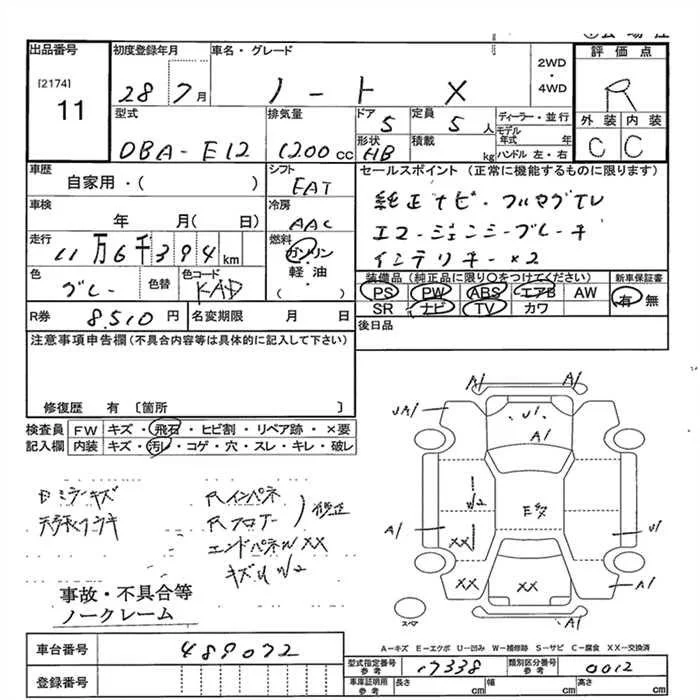 出品番号 初度登録年月 車名・グレード 評価点
[2174]
11
28 7月 ノート X 2WD・4WD R
型式 排気量 ドア 定員 ディーラー・並行 外装 内装
DBA-E12 1200cc 5 5人 モデル年式 年 C C
形状 積載 ハンドル 左・右
HB kg
車歴 シフト セールスポイント (正常に機能するものに限ります)
自家用・( ) FAT 純正ナビ・フルセグTV
車検 冷房 エマージェンシーブレーキ
年 月( 日) AAC インテリキー×2
走行 燃料
11万6千394km ガソリン・軽油・( )
色 色替 色コード 装備品 (純正品に限り○をつけてください) 新車保証書
グレー KAD PS PW ABS エアB AW 有 無
SR ナビ TV カワ
R券 8,510円 名変期限 月 日 後日品
注意事項申告欄(不具合内容等は具体的に記入して下さい)
修復歴 有 〔箇所 〕
検査員 FW キズ・飛石・ヒビ割・リペア跡・×要
記入欄 内装 キズ・汚レ・コゲ・穴・スレ・キレ・破レ
A1 A1
UA1 U1
A1
U2
E多
A1 U1
XX
XX XX A1
スペア
Rインパネ
Rフロアー
エンドパネル XX
キズ U2
事故・不具合等
ノークレーム
A-キズ E-エクボ U-凹み W-補修跡 S-サビ C-腐食 XX-交換済
車台番号 489072
登録番号
型式指定番号 参考 17338 類別区分番号 参考 0012
車庫証明用 参考 長さ cm 幅 cm 高さ cm